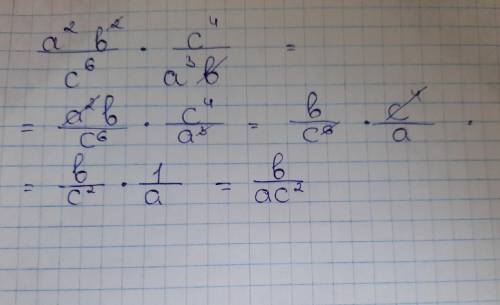 a² b² / c⁶ · c⁴ / a³ b =
= a² b / c⁶ · c⁴ / a³ = b / c⁶ · c⁴ / a ·
= b / c² · 1 / a = b / ac²